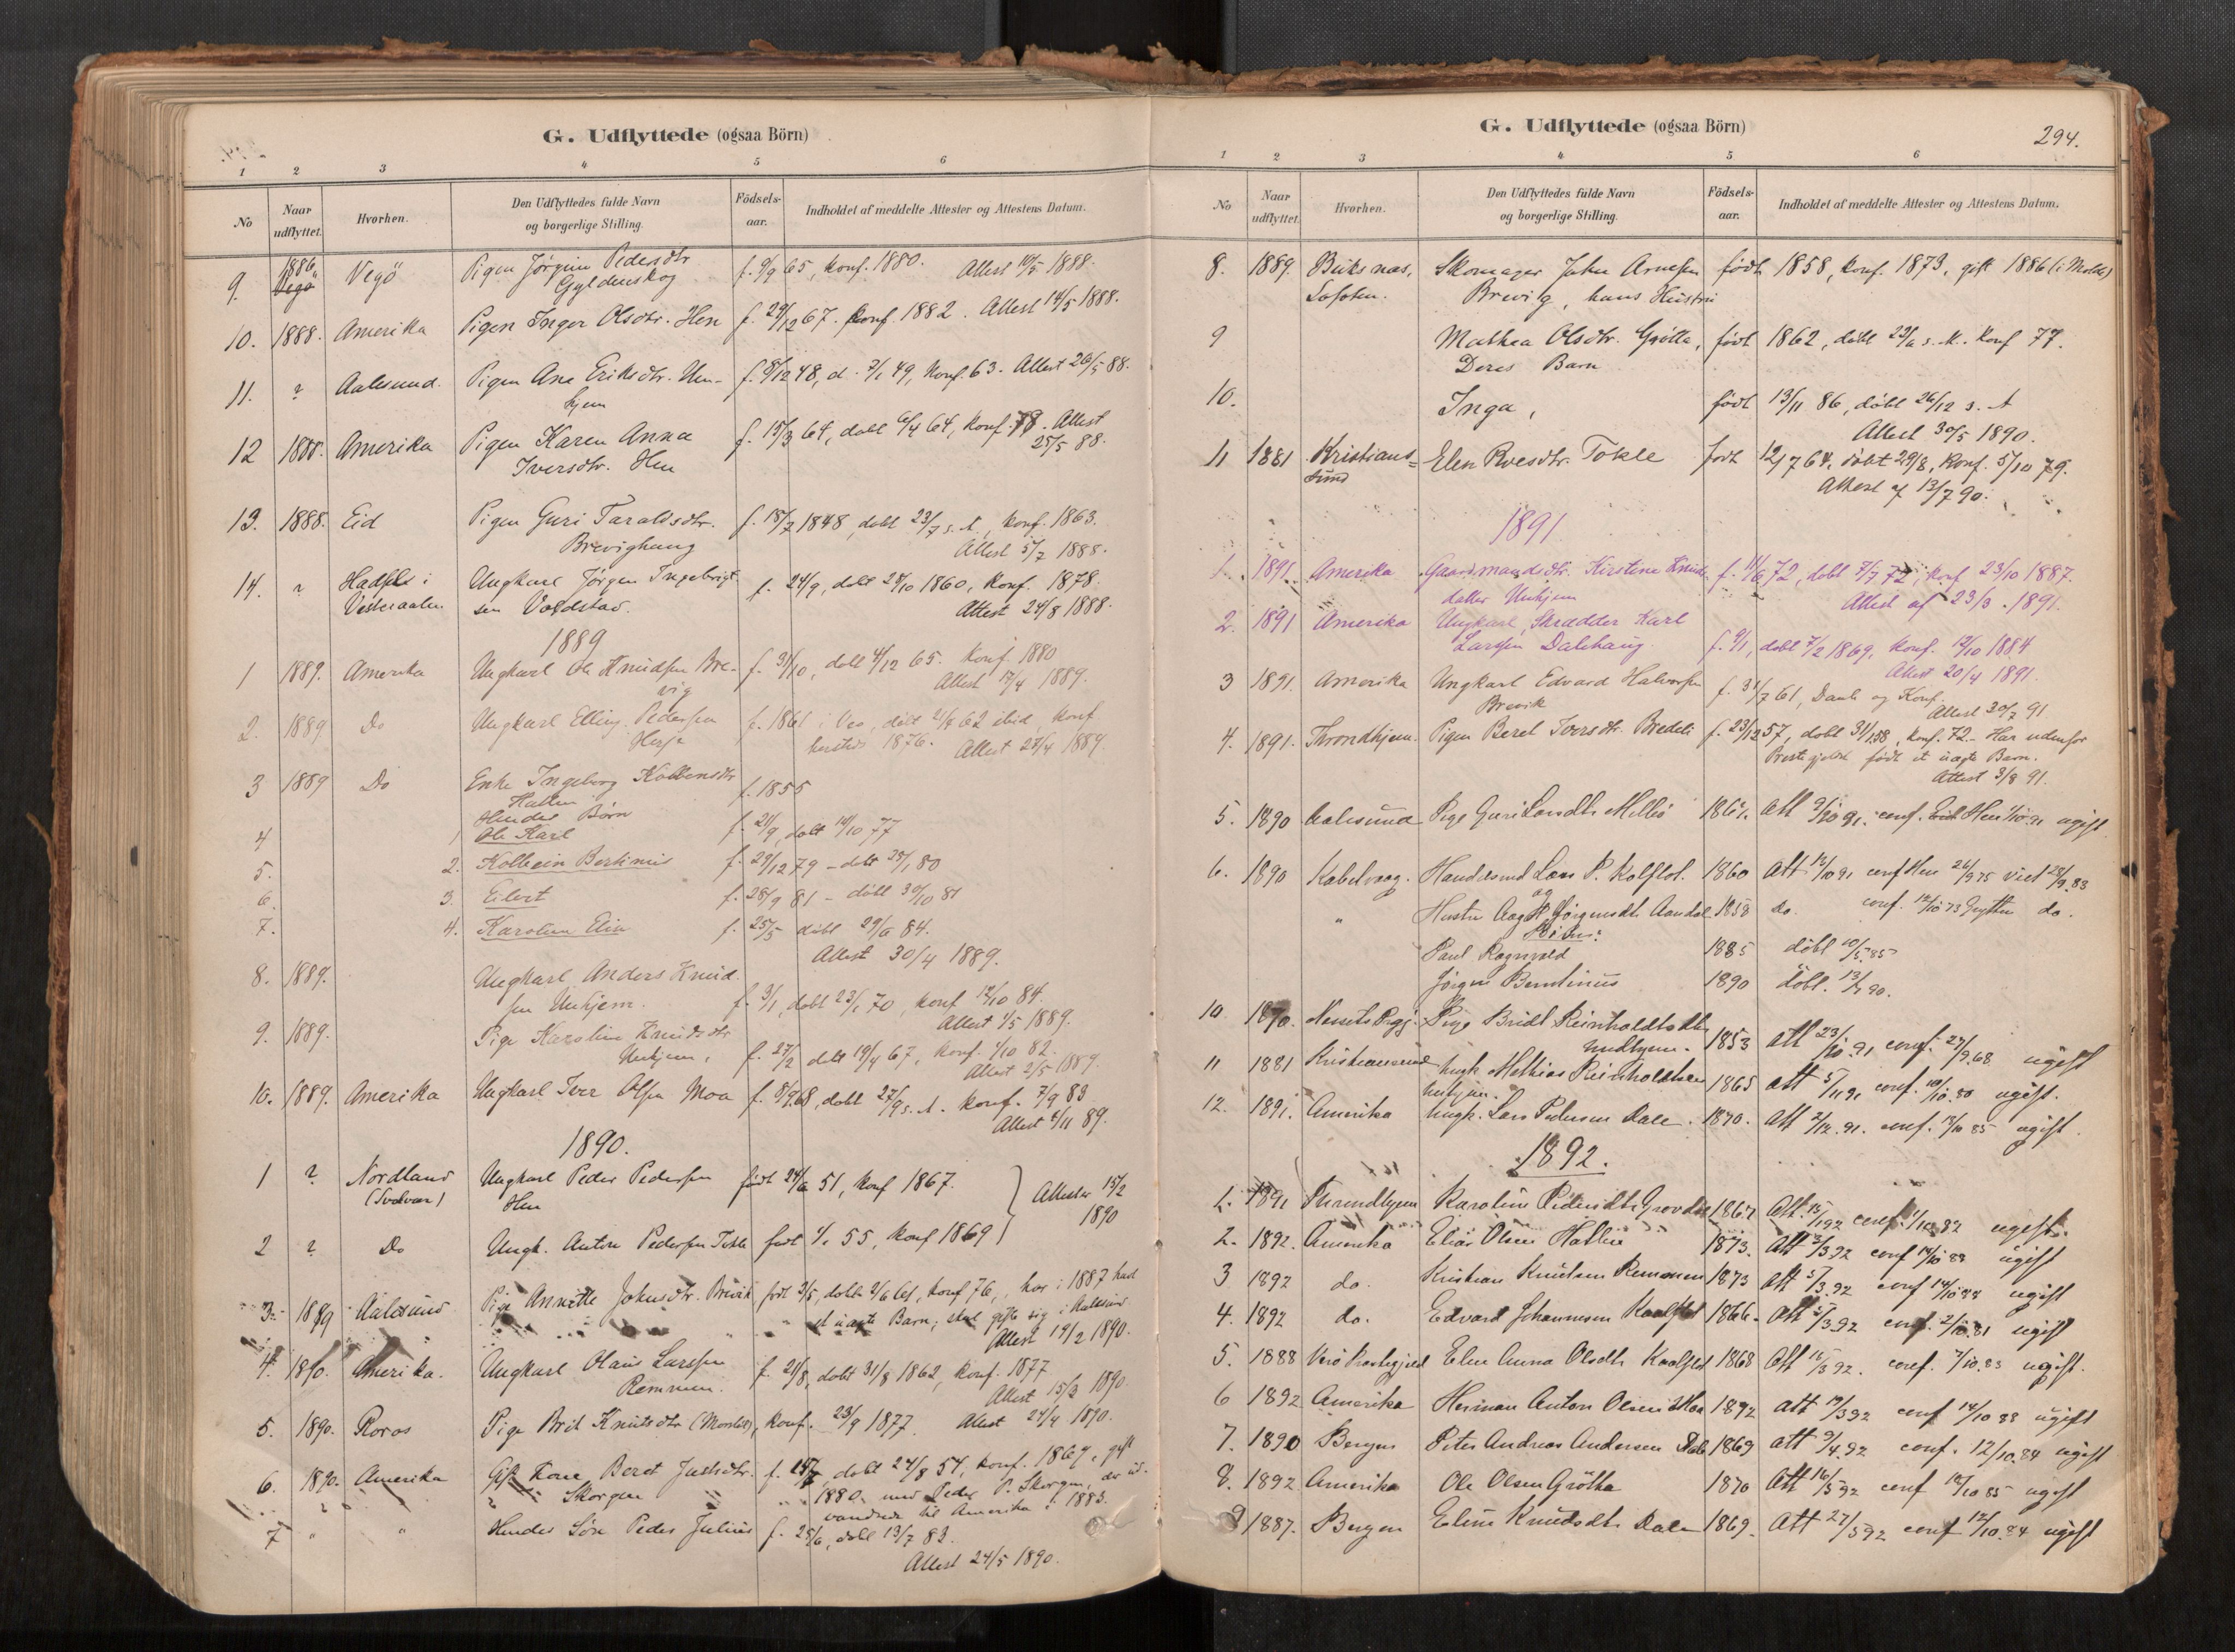 G. Udflyttede (ogsaa Börn)
1 2 3 4 5 6
No
Naar udflyttet.
Hvorhen.
Den Udflyttedes fulde Navn og borgerlige Stilling.
Födsels-aar.
Indholdet af meddelte Attester og Attestens Datum.
9. 1886. Vegö Vegö Pigen Jörgine Pedersdtr f. 9/9 65, konf. 1880. Attest 10/5 1888.
Gyldenskog
10. 1888. Amerika Pigen Inger Olsdtr. Hen f. 29/12 67. konf. 1882. Attest 14/5 1888.
11. ? Aalesund. Pigen Ane Eriksdtr. Un- f. 8/12 48, d. 7/1 49, konf. 63. Attest 26/5 88.
hjem
12 1888. Amerika Pigen Karen Anna f. 15/3 64, døbt 6/4 64, konf. 78. Attest
Iversdtr. Hen 25/5 88.
13. 1888. Eid Pigen Guri Taraldsdtr. f. 15/7 1848, døbt 23/7 s. A., konf. 1863.
Brevighaug Attest 5/7 1888.
14. ? Hadsel i Ungkarl Jörgen Ingebrigt- f. 24/9, døbt 28/10 1860, konf. 1878.
Vesteraalen sen Voldstad. Attest 24/8 1888.
1889
1 1889. Amerika Ungkarl Ole Knudsen Bre- f. 31/10, døbt 4/12 65. konf. 1880
vig Attest 17/4 1889.
2. 1889 Do Ungkarl Elling Pedersen f. 1861 i Veø, døbt 21/4 62 ibid, konf
Herje hersteds 1876. Attest 27/4 1889
3 1889 Do Enke Ingeborg Kolbensdtr f. 1855
Hatlen
Hendes Børn
4 1 Ole Karl f. 21/9, døbt 14/10 77
5. 2. Kolbein Bertinius f. 29/12 79 - døbt 25/1 80
6. 3. Eilert f. 28/9 81 - døbt 30/10 81
7. 4. Karoline Elin f. 25/5 døbt 29/6 84.
Attest 30/4 1889.
8. 1889. Ungkarl Anders Knud-
sen Unhjem. f. 3/1, døbt 23/1 70, konf 12/10 84.
Attest 1/5 1889.
9. 1889. Pige Karoline Knudsdtr
Unhjem, f. 27/2 døbt 19/4 67, konf. 1/10 82.
Attest 2/5 1889.
10. 1889. Amerika Ungkarl Iver Olsen Moa f. 8/9 68, døbt 27/9 s. A. konf. 7/9 83
Attest 4/11 89.
1890.
1 ? Nordland Ungkarl Peder Pedersen født 24/6 51, konf 1867. Attester 15/2
(Svolvær) Hen 1890
2 ? Do Ungk. Anton Pedersen Tokle født 1/1 55, konf 1869
3. 1889 Aalesund Pige Annette Johnsdtr. Brevik født 3/5, døbt 2/6 61, konf 76, har i 1887 havt
et uægte Barn; skal gifte sig i Aalesund
Attest 14/2 1890.
4. 1890. Amerika. Ungkarl Olaus Larssen f. 21/8, døbt 31/8 1862, konf. 1877
Remmem. Attest 15/3 1890.
5. 1890. Røros Pige Brit Knutsdtr (Monsås), konf. 23/9 1877. Attest 24/4 1890.
6. 1890. Amerika Gift Kone Beret Justsdtr. f. 15/7, døbt 24/8 54, konf. 1869, gift
Skorgen 1880. med Peder P. Skorgen, der ud-
vandrede til Amerika i 1883.
7 " " Hendes Søn Peder Julius f. 25/6, døbt 13/7 83.
Attest 24/5 1890.
G. Udflyttede (ogsaa Börn)
294.
1 2 3 4 5 6
No
Naar udflyttet.
Hvorhen.
Den Udflyttedes fulde Navn og borgerlige Stilling.
Födsels-aar.
Indholdet af meddelte Attester og Attestens Datum.
8. 1889. Buksnæs, Skomager John Arnesen født 1858, konf. 1873, gift 1886 (i Molde)
Lofoten. Brevig, hans Hustru
9 Mathea Olsdtr. Grötta, født 1862, døbt 22/6 s. A. konf 77.
Deres Barn
10. Inga, født 13/11 86, døbt 26/12 s. A
Attest 30/5 1890.
11 1881 Kristians= Elen Roesdtr. Tokle født 12/7 64. døbt 29/8, konf. 5/10 79.
sund Attest af 13/7 90.
1891
1. 1891. Amerika Gaardmandsdtr. Kirstine Knud- f. 11/6 72, døbt 7/7 72, konf 23/10 1887.
datter Unhjem Attest af 23/3. 1891.
2. 1891 Amerika Ungkarl, Skrædder Karl
Larssen Dalehaug. f. 9/1, døbt 7/2 1869, konf. 12/10 1884
Attest 20/4 1891.
3 1891. Amerika Ungkarl Edvard Halvorsen f. 31/7 61, Daab og Konf.
Brevik Attest 30/7 91
4. 1891. Throndhjem. Pigen Beret Iversdtr. Bredeli f. 23/12 57, døbt 31/1 58, konf. 72. - Har udenfor
Prestegjeldet født et uægte Barn.
Attest 3/8 91.
5. 1890 Aalesund Pige Guri Larsdtr Mellbö 1867. Att 9/10 91. conf. Hen 1/10 81 ugift
6. 1890 Kabelvaag. Handelsmd Lars P. Kolflot. 1860 Att 12/10 91 conf Hen 26/9 75 viet 28/9.83
og
" Hustru Aag H. Jörgensdtr Aandal 1858 do. conf. 12/10 73 Grytten do.
Börn:
Paul Ragnvald 1885 döbt 10/5.85
Jörgen Berntinus 1890 döbt. 13/7 90.
10 1890. Nessets Prgj. Pige Bridt Reinholdtsdtr
Undhjem. 1853 att 23/10.91 conf. 27/9.68 ugift
11 1881 Kristiansund Ungk Mathias Reinholdtsen
Unhjem. 1865 att 5/11 91 conf. 10/10.80 ugift.
12. 1891. Amerika Ungk. Lars Pedersen Dale. 1870. Att 2/12.91. conf. 18/10 85 ugift.
1892.
1. 1891 Throndhjem Karoline Pedersdtr Grovdal 1867 Att. 15/1 92 conf. 1/10 82 ugift.
2. 1892. Amerika Eliás Olsen Hatlen 1873. Att 3/3 92 conf 14/10 88 ugift
3 1892 do. Kristian Knutsen Remmem 1873 att 5/3.92 conf 14/10 88 ugift
4. 1892 do. Edvard Johannesen Kaalflot 1866. Att 5/3.92 conf. 2/10.81 ugift
5. 1888 Verö Prestegjeld Elen Anna Olsdtr Kaalflot 1868 Att 16/3 92. conf. 7/10.83 ugift.
6 1892 Amerika Herman Anton Olsen Moa 1892 att 19/3 92 conf 14/10 88 ugift
7. 1890 Bergen Peter Andreas Andersen Dale 1869 att 9/4.92 conf. 12/10.84 ugift
8. 1892 Amerika Ole Olsen Grötta 1870 Att 16/5 92 conf 18/10 85 ugift
9 1887. Bergen Eline Knudsdtr Dale 1869. Att 27/5 92 conf 12/10.84 ugift